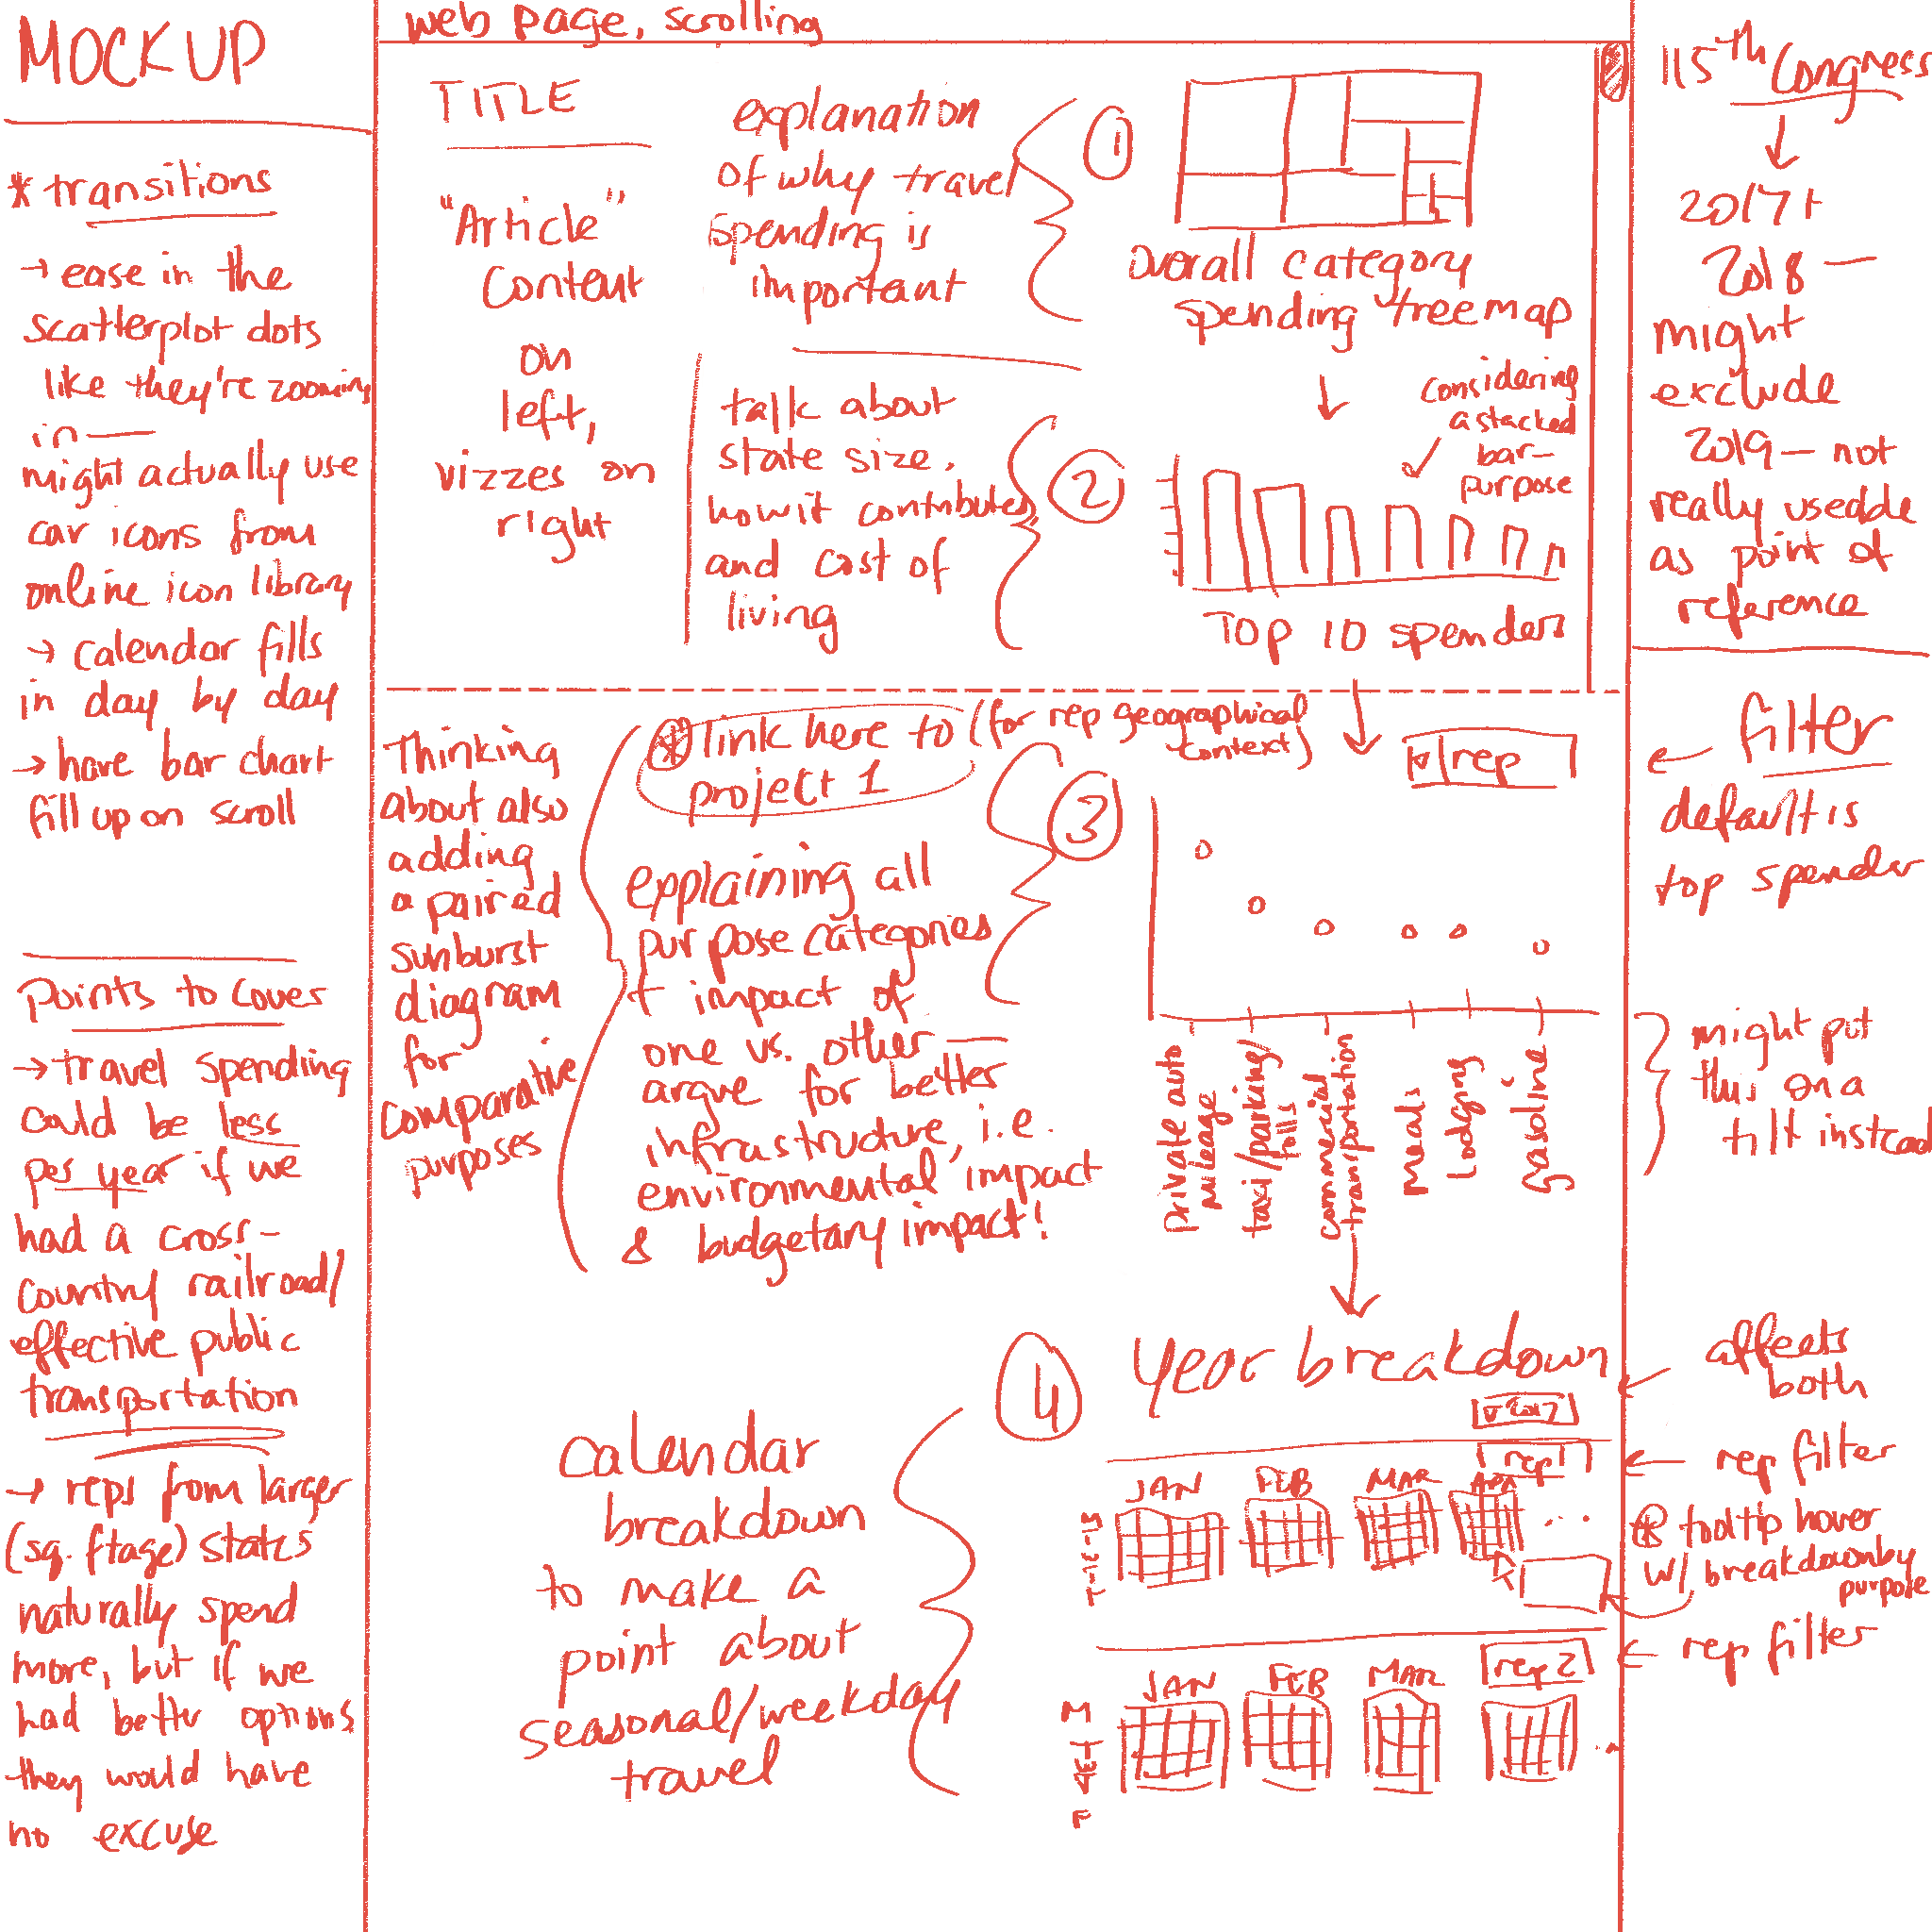 MOCKUP
* transitions
→ ease in the
scatterplot dots
like they're zooming
in —
might actually use
car icons from
online icon library
→ calendar fills
in day by day
→ have bar chart
fill up on scroll
Points to cover
→ travel spending
could be less
per year if we
had a cross-
country railroad/
effective public
transportation
→ reps from larger
(sq. ftage) states
naturally spend
more, but if we
had better options
they would have
no excuse
web page, scrolling
TITLE
"Article"
Content
on
left,
vizzes on
right
explanation
of why travel
spending is
important
1
Overall category
spending treemap
talk about
state size.
how it contributes
and cost of
living
2
considering
a stacked
bar—
purpose
Top 10 spenders
Thinking
about also
adding
a paired
sunburst
diagram
for
comparative
purposes
* link here to
project 1
(for rep geographical
context)
explaining all
purpose categories
+ impact of
one vs. other —
argue for better
infrastructure, i.e.
environmental impact
& budgetary impact!
3
rep
private auto
mileage
taxi/parking/
tolls
commercial
transportation
meals
lodging
gasoline
calendar
breakdown
to make a
point about
seasonal/weekday
travel
4
Year breakdown
2017
rep 1
JAN FEB MAR APR
...
rep 2
JAN FEB MAR
115th Congress
2017 +
2018 —
might
exclude
2019 — not
really useable
as point of
reference
← filter
default is
top spender
might put
this on a
tilt instead
affects
both
← rep filter
* tooltip hover
w/ breakdown by
purpose
← rep filter